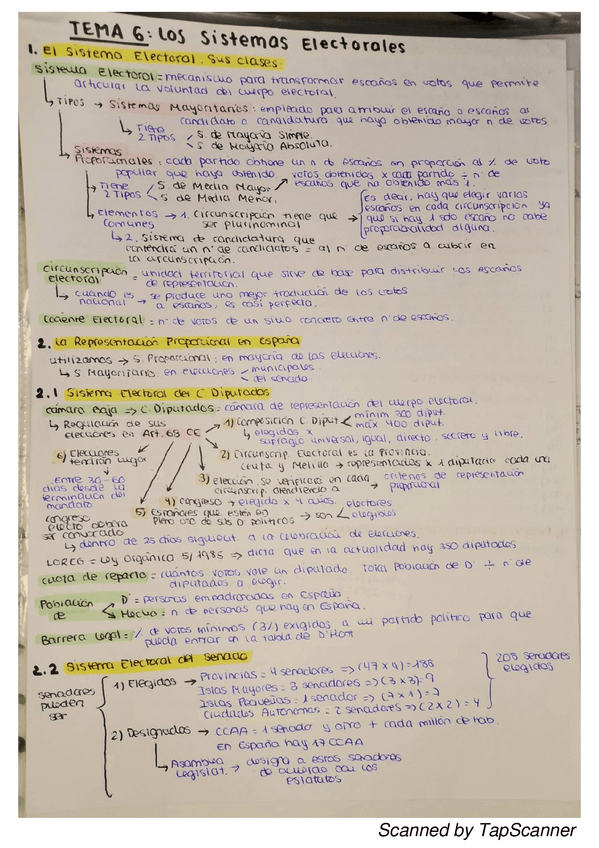 TEMA 6: LOS Sistemas Electorales
1. El Sistema Electoral. Sus clases
Sistema Electoral = mecanismo para transformar escaños en votos que permite
articular la voluntad del cuerpo electoral.
↳ TIPOS → Sistemas Mayoritarios: empleado para atribuir el escaño o escaños al
candidato o candidatura que haya obtenido mayor n de votos
↳ Tiene 2 Tipos < S. de Mayoría Simple.
S. de Mayoría Absoluta.
Sistemas Proporcionales: cada partido obtiene un n de escaños en proporción al % de voto
popular que haya obtenido.
votos obtenidos x cada partido ÷ n de
escaños que no obtenido más 1.
↳ Tiene 2 Tipos < S de Media Mayor
S de Media Menor.
↳ Elementos comunes → 1. Circunscripción tiene que
ser plurinominal →
Es decir, hay que elegir varios
escaños en cada circunscripción ya
que si hay 1 sólo escaño no cabe
proporcionalidad alguna.
↳ 2. Sistema de candidatura que
contendrá un nº de candidatos = al n de escaños a cubrir en
la circunscripción.
Circunscripción Electoral = unidad territorial que sirve de base para distribuir los escaños
de representación.
↳ cuando es nacional → se produce una mejor traducción de los votos
a escaños, es casi perfecta.
Cociente Electoral = nº de votos de un sitio concreto entre nº de escaños.
2. La Representación Proporcional en España
utilizamos → S. Proporcional: en mayoría de las elecciones.
↳ S Mayoritario: en elecciones < municipales.
del senado.
2.1 Sistema Electoral del C. Diputados
cámara Baja => C. Diputados = cámara de representación del cuerpo electoral.
↳ Regulación de sus
elecciones en Art. 68 CE
1) Composición C. Diput < mínim 300 diput.
máx 400 diput.
↳ elegidos x
sufragio universal, igual, directo, secreto y libre.
2) Circunscrip. Electoral es la Provincia.
Ceuta y Melilla → representadas x 1 diputado cada una
3) Elección se verificará en cada
circunscrip. atendiendo a → criterios de representación
proporcional
4) congreso → elegido x 4 años.
5) Españoles que estén en
pleno uso de sus D políticos → son < electores
elegibles
6) Elecciones
tendrán lugar
↓
entre 30-60
días desde la
terminación del
mandato
congreso
electo deberá
ser convocado
↳ dentro de 25 días siguient. a la celebración de elecciones.
LOREG = Ley Orgánica 5/1985 => dicta que en la actualidad hay 350 diputados
cuota de reparto = cuántos votos vale un diputado. Total Población de D ÷ nº de
diputados a elegir.
Población de < D = personas empadronadas en España.
Hecho = n de personas que hay en España.
Barrera Legal = % de votos mínimos (3%) exigidos a un partido político para que
pueda entrar en la tabla de D'Hont
2.2 Sistema Electoral del Senado
senadores
pueden
ser
1) Elegidos → Provincias = 4 senadores => (47 x 4) = 188
Islas Mayores = 3 senadores => (3 x 3) = 9
Islas Pequeñas = 1 senador => (7 x 1) = 7
Ciudades Autónomas = 2 senadores => (2 x 2) = 4
208 senadores
elegidos
2) Designados → CCAA = 1 senador y otro + cada millón de hab.
en España hay 17 CCAA
↳ Asamblea
Legislat. → designa a estos senadores
de acuerdo con los
estatutos
Scanned by TapScanner